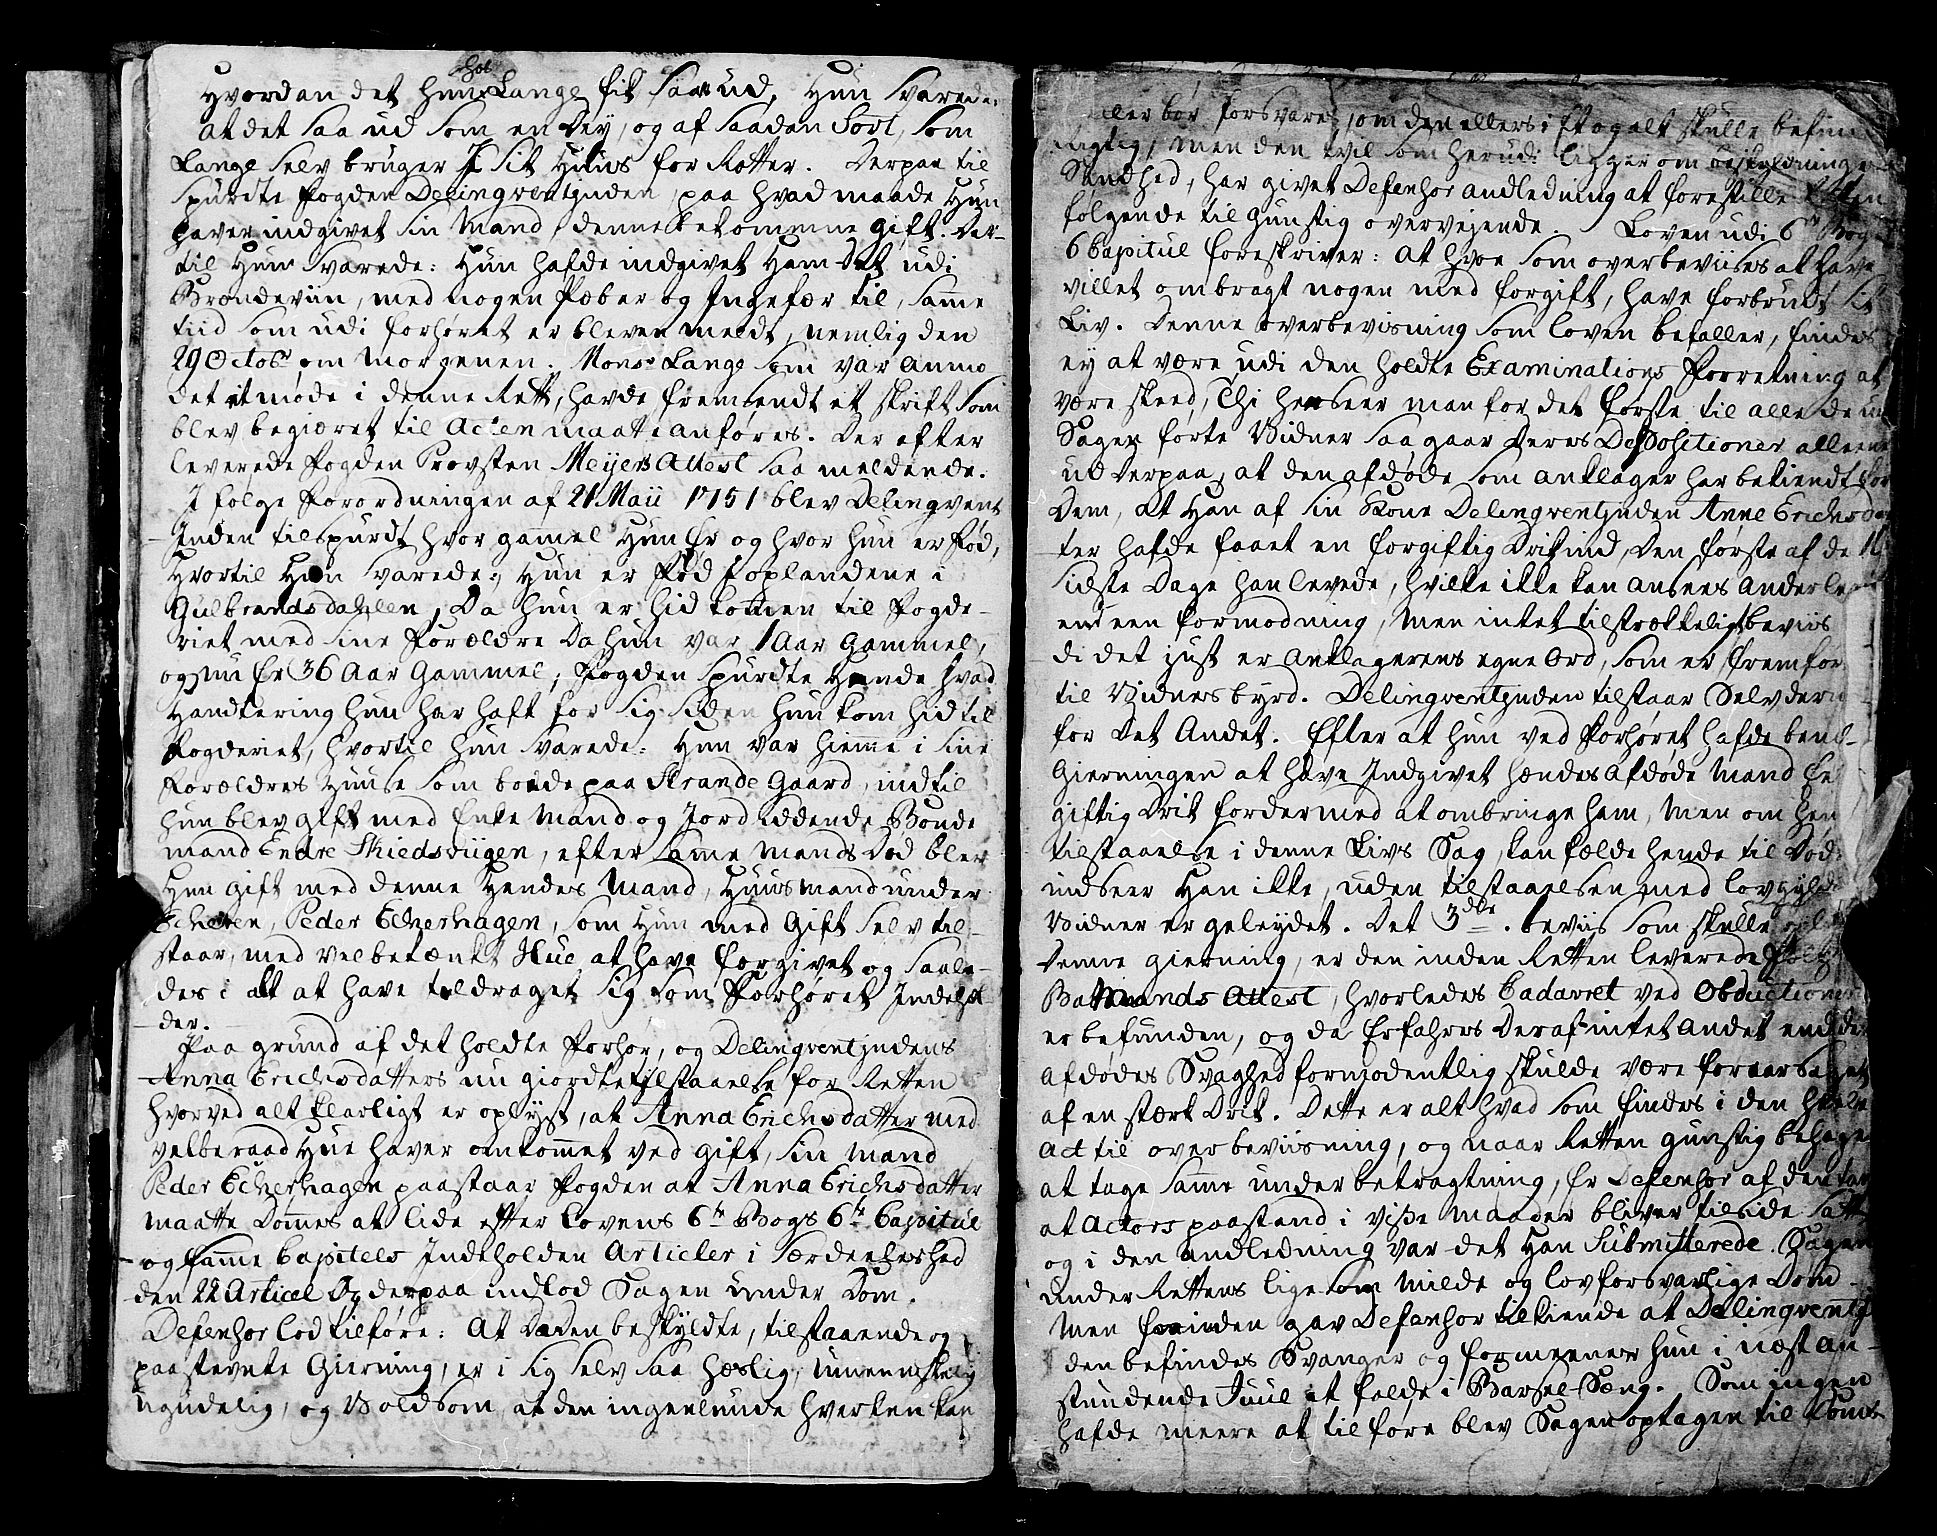 hos
Hvordan det hun Lange fik saae ud, Hun svarede:
at det saa ud som en Dey, og af saadan Sort, som
Lange selv bruger I sit Huus for Rotter. Derpaa til
spurdte fogden Delinqventinden, paa hvad maade Hun
haver indgivet sin Mand denne bekomne Gift. Der-
til Hun svarede: Hun hafde indgivet Ham det udi
Brændeviin, med nogen Peber og Ingefær til, samme
tiid som udi forhøret er bleven meldt, nemlig den
29 Octobr. om Morgenen. Monsr. Lange som var anmo
det at møde i denne Rett, havde fremsendt et skrift som
blev begiæret til Acten maatte anføres. Der efter
leverede fogden Provsten Meyers Attest saa meldende.
I følge forordningen af 21 Maii 1751 blev Delinqvent
Inden tilspurdt hvor gammel Hun Er og hvor hun er fød,
Hvortil Hun svarede, Hun er fød i oplandene i
Gulbrandsdahlen, Da hun er hid kommen til fogde-
riet med sine forældre Da hun var 1 Aar gammel,
og nu Er 36 Aar Gammel; fogden spurdte Hende hvad
Handtering hun har haft for sig siden hun kom hid til
fogderiet, hvortil hun svarede: Hun var hiemme i sine
forældres Huuse som boede paa Strande Gaard, indtil
hun blev gift med Enke Mand og Jord iddende Bonde
mand Endre Skiedsviigen, efter samme Mands Død blev
Hun gift med denne Hendes Mand, Huusmand under
Echeren, Peder Echerhagen, som Hun med Gift selv til-
staar, med velbetænkt Hue, at have forgivet og saale-
des i alt at have tildraget sig som forhøret Indehol
der.
Paa grund af det holdte forhør, og Delinqventindens
Anna Erichsdatters nu giordte tilstaaelse for Retten
hvorved alt klarligt er oplyst, at Anna Erichsdatter med
velberaad Hue haver omkommet ved gift, sin Mand
Peder Echerhagen paastaar fogden at Anna Erichsdatter
maatte Dømmes at lide efter Lovens 6te Bogs 6te Capitul
og samme Capitels Indeholden Articler i særdeeleshed
den 22 Articel Og derpaa indlod Sagen under Dom.
Defensor lod tilføre: At Daden beskyldte, tilstaaende og
paastevnte Gierning, er i sig selv saa hæslig, umenneskelig
ugudelig, og Voldsom at den ingenlunde hverken kan
eller bør forsvares, om den ellers i Et og alt skulle befin
Rigtig, men den tvil som herudi ligger om beskyldningens
Sandhed, har givet Defensor andledning at forestille Retten
følgende til gunstig overvejende. Loven udi 6te Bog
6 Capitul foreskriver: At hvo som overbeviises at have
villet ombragt nogen med forgift, have forbrudt sit
Liv. Denne overbevisning som loven befaller, findes
ey at være udi den holdte Examinations forretning at
være skeed, Thi henseer man for det første til alle de u
Sagen førte Vidner saa gaar Deres Depositioner alleene
ud derpaa, at den afdøde som anklager har bekiendt for
Dem, at Han af sin Kone Delinqventinden Anne Erichsda
ter hafde faaet en forgiftig Drik ind, Den første af de 11
sidste Dage han levede, hvilke ikke kan ansees Anderledes
end een formodning, men intet tilstrækkeligt beviis
di det just er anklagerens egne Ord, som er fremfør
til Vidnesbyrd. Delinqventinden tilstaar selv dern
for Det Andet. Efter at hun ved forhøret hafde ben
Gierningen at have Indgivet hendes afdøde Mand
giftig Drik fordermed at ombringe ham, men om hen
tilstaaelse i denne Livs Sag, kan fælde hende til Død
indseer Han ikke, uden tilstaaelsen med lovgyld
Vidner er geleydet. Det 3die beviis som skulle
Denne gierning, er den inden Retten leverede
Attest, hvorledes Cadavret ved Obductionen
er befunden, og da Erfahres Deraf intet andet end de
afdødes Svaghed formodentlig skulde være foraarsaget
af en stærk Drik. Dette er alt hvad som findes i den heele
Act til overbeviisning, og naar Retten gunstig behager
at tage samme under betragtning, Er Defensor af den tan
at Actors paastand i visse maader bliver tilside satt
og i den andledning var det Han Submitterede Sagen
under Rettens lige som milde og lovforsvarlige Dom.
Men forinden gav Defensor tilkiende at Delinqventj
den befindes Svanger og formeener hun i næst an-
stundende Juul at falde i Barsel Seng. Som ingen
hafde meere at tilføre blev Sagen optagen til Doms